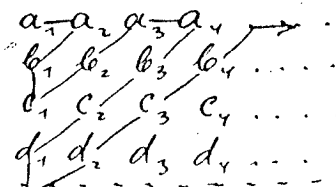 a₁ a₂ a₃ a₄ .
b₁ b₂ b₃ b₄ ....
c₁ c₂ c₃ c₄ ....
d₁ d₂ d₃ d₄ ....